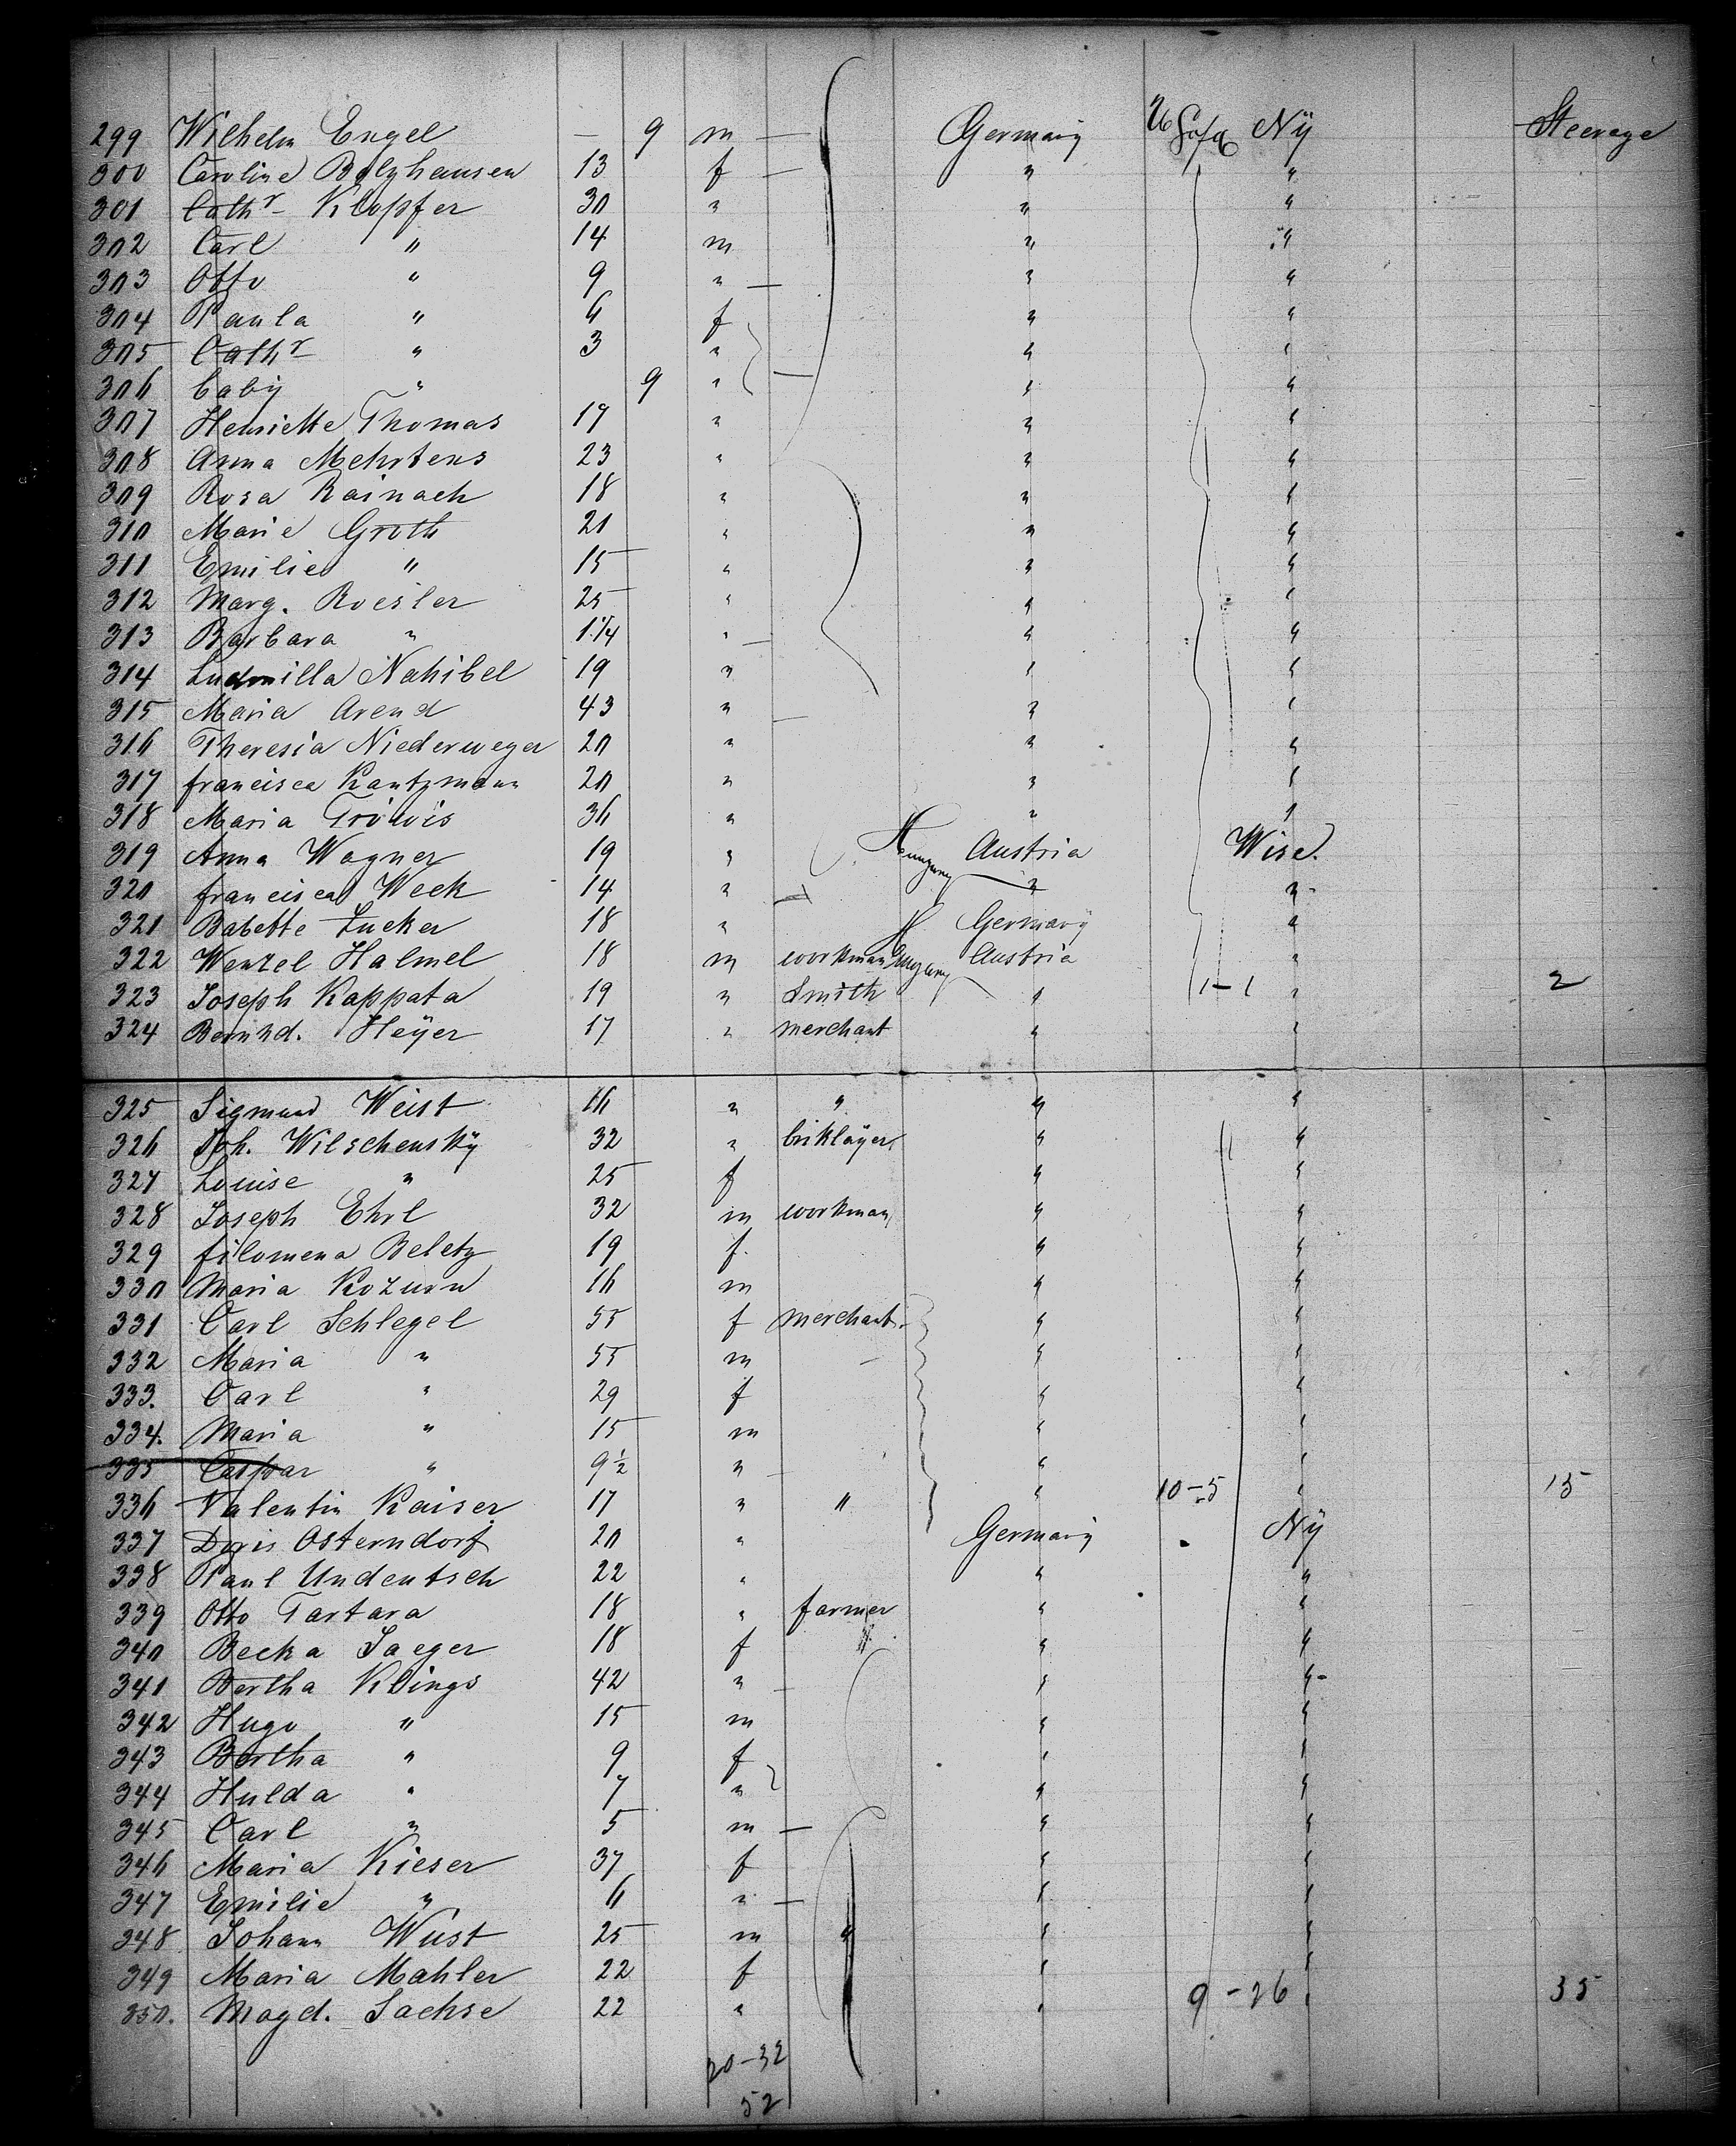 299 Wilhelm Engel — 9 m — Germany Ny Steerage
300 Caroline Bolzhausen 13 f — " "
301 Cathr Klopfer 30 " " "
302 Carl " 14 m " "
303 Otto " 9 " — " "
304 Paula " 6 f " "
305 Cathr " 3 " " "
306 baby " 9 " — " "
307 Henriette Thomas 17 " " "
308 Anna Mehrtens 23 " " "
309 Rosa Rainach 18 " " "
310 Marie Groth 21 " " "
311 Emilie " 15 " " "
312 Marg. Roesler 25 " " "
313 Barbara " 1 1/4 " — " "
314 Ludmilla Nahibel 19 " " "
315 Maria Arend 43 " — " "
316 Theresia Niederweger 20 " " "
317 francisca Kantzmann 20 " " "
318 Maria 36 " " "
319 Anna Wagner 19 " Hungary Austria Wisc.
320 francisca Weck 14 " " "
321 Babette Zucker 18 " Germany "
322 Wenzel Halmel 18 m workman Hungary Austria "
323 Joseph Kappata 19 " Smith " 1-1 " 2
324 Bernhd. Heyer 17 " merchant " "
325 Sigmund Weist 16 " " " "
326 Joh. Wilschensky 32 " brikläyer " "
327 Louise " 25 f " "
328 Joseph Ehrl 32 m workman " "
329 filomena Beletz 19 f. " "
330 Maria Kozurn 16 m " "
331 Carl Schlegel 55 f merchant. " "
332 Maria " 55 m " "
333. Carl " 29 f " "
334. Maria " 15 m " "
335 Caspar " 9 1/2 " " "
336 Valentin Kaiser 17 " " " 10-5 " 15
337 Doris Osterndorf 20 " Germany Ny
338 Paul Undeutsch 22 " " "
339 Otto Tartara 18 " farmer " "
340 Becka Jaeger 18 f " "
341 Bertha Klings 42 " " "
342 Hugo " 15 m " "
343 Bertha " 9 f " "
344 Hulda " 7 " " "
345 Carl " 5 m — " "
346 Maria Kieser 37 f " "
347 Emilie " 6 " — " "
348 Johann Wüst 25 m " " "
349 Maria Mahler 22 f " "
350. Magd. Sachse 22 " " 9-26 " 35
20-32
52